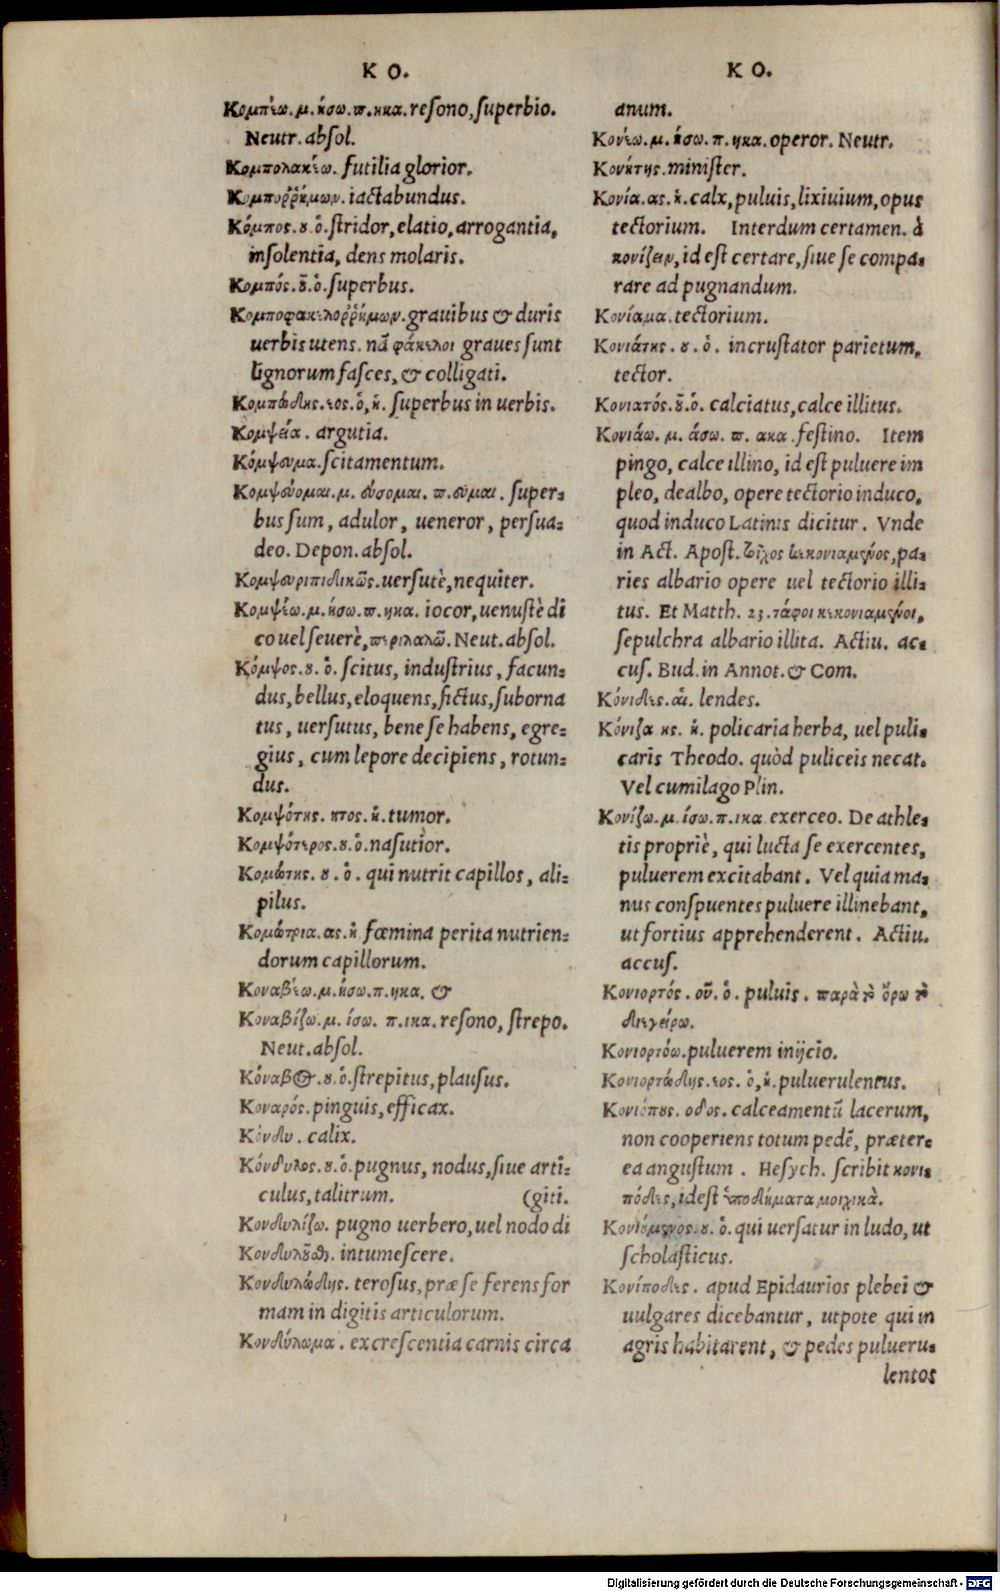 K O.
Κομπέω. μ. ήσω. π. ηκα. reſono, ſuperbio.
Neutr. abſol.
Κομπολακέω. futilia glorior.
Κομποῤῥήμων. iactabundus.
Κόμπος. ȣ. ὁ. ſtridor, elatio, arrogantia,
inſolentia, dens molaris.
Κομπός. ȣ͂. ὁ. ſuperbus.
Κομποφακελοῤῥήμων. grauibus & duris
uerbis utens. nā φάκελοι graues ſunt
lignorum faſces, & colligati.
Κομπώδης. εος. ὁ, ἡ. ſuperbus in uerbis.
Κομψεία. argutia.
Κόμψευμα. ſcitamentum.
Κομψεύομαι. μ. εύσομαι. π. ευμαι. ſuper=
bus ſum, adulor, ueneror, perſua=
deo. Depon. abſol.
Κομψευριπιδικῶς. uerſutè, nequiter.
Κομψέω. μ. ήσω. π. ηκα. iocor, uenuſtè di
co uel ſeuerè, περιλαλῶ. Neut. abſol.
Κόμψος. ȣ. ὁ. ſcitus, induſtrius, facun=
dus, bellus, eloquens, fictus, ſuborna
tus, uerſutus, bene ſe habens, egre=
gius, cum lepore decipiens, rotun=
dus.
Κομψότης. ητος. ἡ. tumor.
Κομψότερος. ȣ. ὁ. naſutior.
Κομώτης. ȣ. ὁ. qui nutrit capillos, ali=
pilus.
Κομώτρια. ας. ἡ fœmina perita nutrien=
dorum capillorum.
Κοναβέω. μ. ήσω. π. ηκα. &
Κοναβίζω. μ. ίσω. π. ικα. reſono, ſtrepo.
Neut. abſol.
Κόναβος. ȣ. ὁ. ſtrepitus, plauſus.
Κοναρός. pinguis, efficax.
Κόνδυ. calix.
Κόνδυλος. ȣ. ὁ. pugnus, nodus, ſiue arti=
culus, talitrum. (giti.
Κονδυλίζω. pugno uerbero, uel nodo di
Κονδυλȣ͂ϑ. intumeſcere.
Κονδυλώδης. teroſus, præ ſe ferens for
mam in digitis articulorum.
Κονδύλωμα. excreſcentia carnis circa
K O.
anum.
Κονέω. μ. ήσω. π. ηκα. operor. Neutr.
Κονήτης. miniſter.
Κονία. ας. ἡ. calx, puluis, lixiuium, opus
tectorium. Interdum certamen. à
κονίζειν, id eſt certare, ſiue ſe compa=
rare ad pugnandum.
Κονίαμα. tectorium.
Κονιάτης. ȣ. ὁ. incruſtator parietum,
tector.
Κονιατός. ȣ͂. ὁ. calciatus, calce illitus.
Κονιάω. μ. άσω. π. ακα. feſtino. Item
pingo, calce illino, id eſt puluere im
pleo, dealbo, opere tectorio induco,
quod induco Latinis dicitur. Vnde
in Act. Apoſt. τοῖχος κεκονιαμένος, pa=
ries albario opere uel tectorio illi=
tus. Et Matth. 23. τάφοι κεκονιαμένοι,
ſepulchra albario illita. Actiu. ac=
cuſ. Bud. in Annot. & Com.
Κόνιδες. αἱ. lendes.
Κόνιζα ης. ἡ. policaria herba, uel puli=
caris Theodo. quòd puliceis necat.
Vel cumilago Plin.
Κονίζω. μ. ίσω. π. ικα. exerceo. De athle=
tis propriè, qui lucta ſe exercentes,
puluerem excitabant. Vel quia ma=
nus conſpuentes puluere illinebant,
ut fortius apprehenderent. Actiu.
accuſ.
Κονιορτός. οῦ. ὁ. puluis. παρὰ τὸ ὄρω τὸ
διεγείρω.
Κονιορτόω. puluerem inijcio.
Κονιορτώδης. εος. ὁ, ἡ. puluerulentus.
Κονιόπȣς. οδος. calceamentū lacerum,
non cooperiens totum pedē, præter=
ea anguſtum. Heſych. ſcribit κονι=
πόδες, id eſt ὑποδήματα μοιχικὰ.
Κονιώμενος. ȣ. ὁ. qui uerſatur in ludo, ut
ſcholaſticus.
Κονίποδες. apud Epidaurios plebei &
uulgares dicebantur, utpote qui in
agris habitarent, & pedes pulueru=
lentos
Digitalisierung gefördert durch die Deutsche Forschungsgemeinschaft - DFG